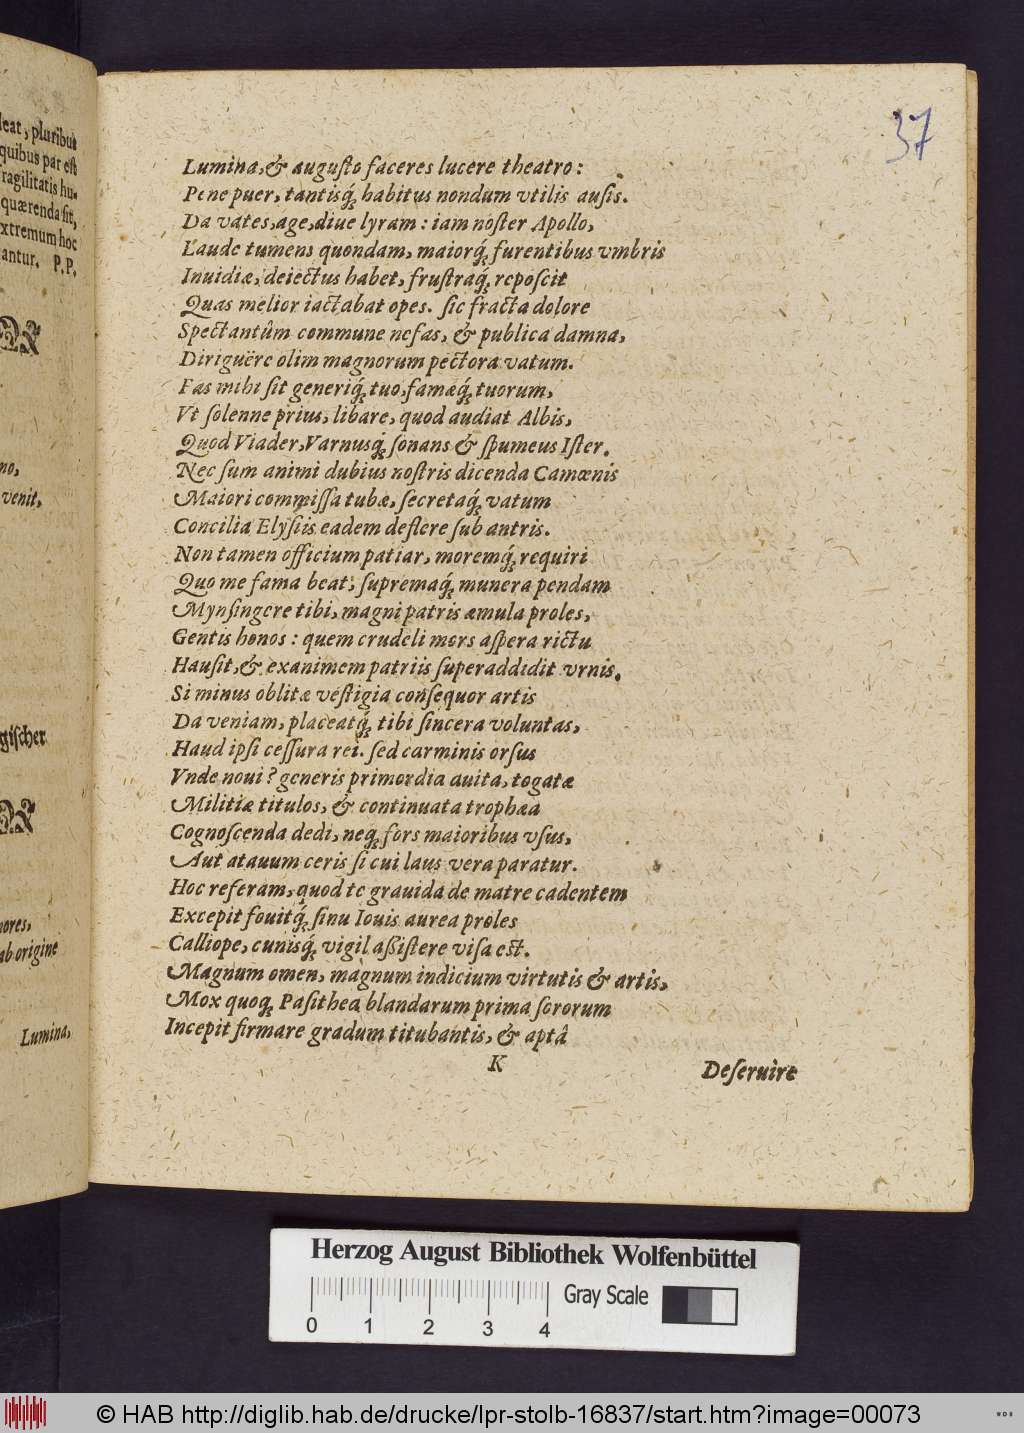 leat, pluribus
quibus par est
ragilitatis hu-
quærenda sit,
xtremum hoc
antur. P.P.
no,
venit,
gischer
nores,
ab origine
Lumina,
37
Lumina, & augusto faceres lucere theatro:
Pene puer, tantisq́; habitus nondum vtilis ausis.
Da vates, age, diue lyram: iam noster Apollo,
Laude tumens quondam, maiorq́; furentibus vmbris
Inuidiæ, deiectus habet, frustraq́; reposcit
Quas melior iactabat opes. sic fracta dolore
Spectantûm commune nefas, & publica damna,
Diriguêre olim magnorum pectora vatum.
Fas mihi sit generiq́; tuo, famæq́; tuorum,
Vt solenne prius, libare, quod audiat Albis,
Quod Viader, Varnusq́; sonans & spumeus Ister.
Nec sum animi dubius nostris dicenda Camœnis
Maiori commissa tubæ, secretaq́; vatum
Concilia Elysiis eadem deflere sub antris.
Non tamen officium patiar, moremq́; requiri
Quo me fama beat, supremaq́; munera pendam
Mynsingere tibi, magni patris æmula proles,
Gentis honos: quem crudeli mors aspera rictu
Hausit, & exanimem patriis superaddidit vrnis.
Si minus oblitæ vestigia consequor artis
Da veniam, placeatq́; tibi sincera voluntas,
Haud ipsi cessura rei. sed carminis orsus
Vnde noui? generis primordia auita, togatæ
Militiæ titulos, & continuata trophæa
Cognoscenda dedi, neq; fors maioribus vsus,
Aut atauum ceris si cui laus vera paratur.
Hoc referam, quod te grauida de matre cadentem
Excepit fouitq́; sinu Iouis aurea proles
Calliope, cunisq́; vigil aßistere visa est.
Magnum omen, magnum indicium virtutis & artis,
Mox quoq; Pasithea blandarum prima sororum
Incepit firmare gradum titubantis, & aptâ
K
Deseruire
Herzog August Bibliothek Wolfenbüttel
0 1 2 3 4
Gray Scale
© HAB http://diglib.hab.de/drucke/lpr-stolb-16837/start.htm?image=00073